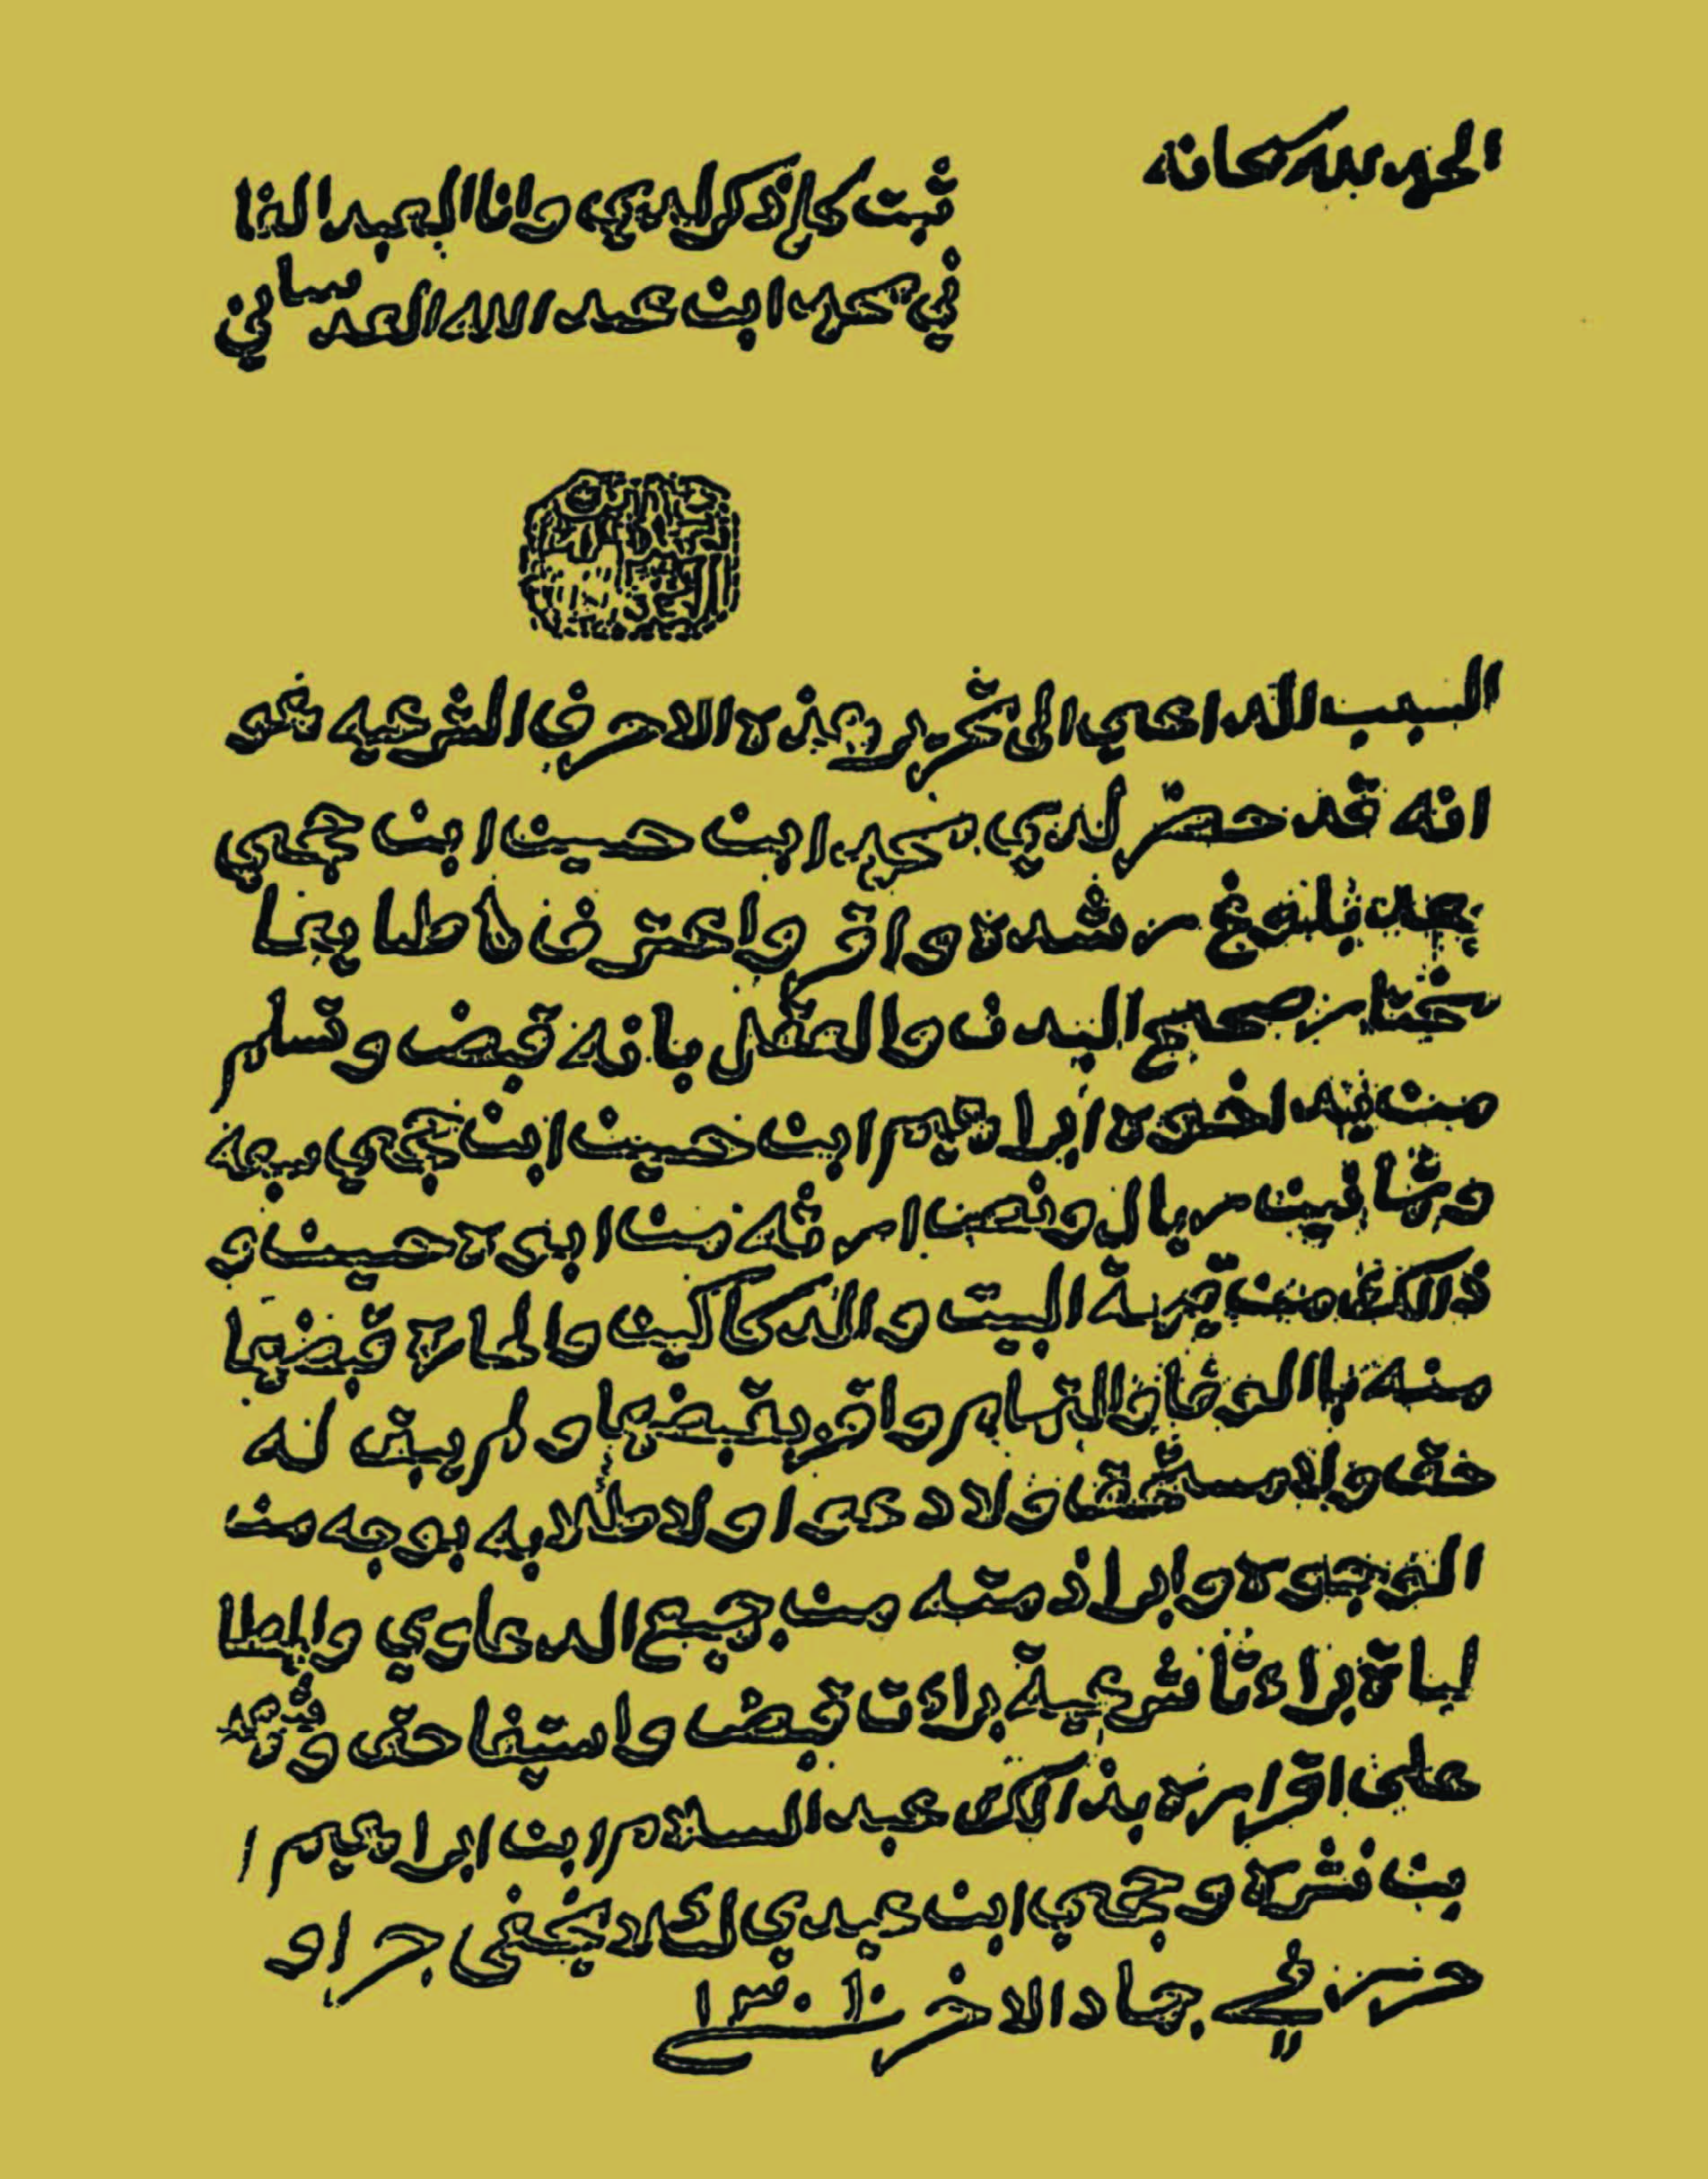 الحمد لله سبحانه
ثبت كلما ذكر لدي وانا العبد الفا
ني محمد ابن عبد الله العدساني
السبب الداعي الى تحرير هذه الاحرف الشرعيه هو
انه قد حضر لدي محمد ابن حسين ابن حجي
بعد بلوغ رشده واقر واعترف طايعا
مختار صحيح البدن والعقل بانه قبض وتسلم
من يد اخوه ابراهيم ابن حسين ابن حجي سبعة
وثمانين ريال ونصف ارثه من ابوه حسين و
ذالك من قيمة البيت والدكاكين والحاره قبضها
منه باالوفا والتمام واقر بقبضها ولم يبق له
حق ولا مستحق ولا دعوا ولا طلابه بوجه من
الوجوه وابرا ذمته من جميع الدعاوي والمطا
لباة براءتا شرعية براءت قبض واستيفا حق وشهد
على اقراره بذالك عبد السلام ابن ابراهيم ا
بن نشره وحجي ابن عيدي لك لا يخفى جرا و
حرر في جماد الاخر سنة ١٣٠١